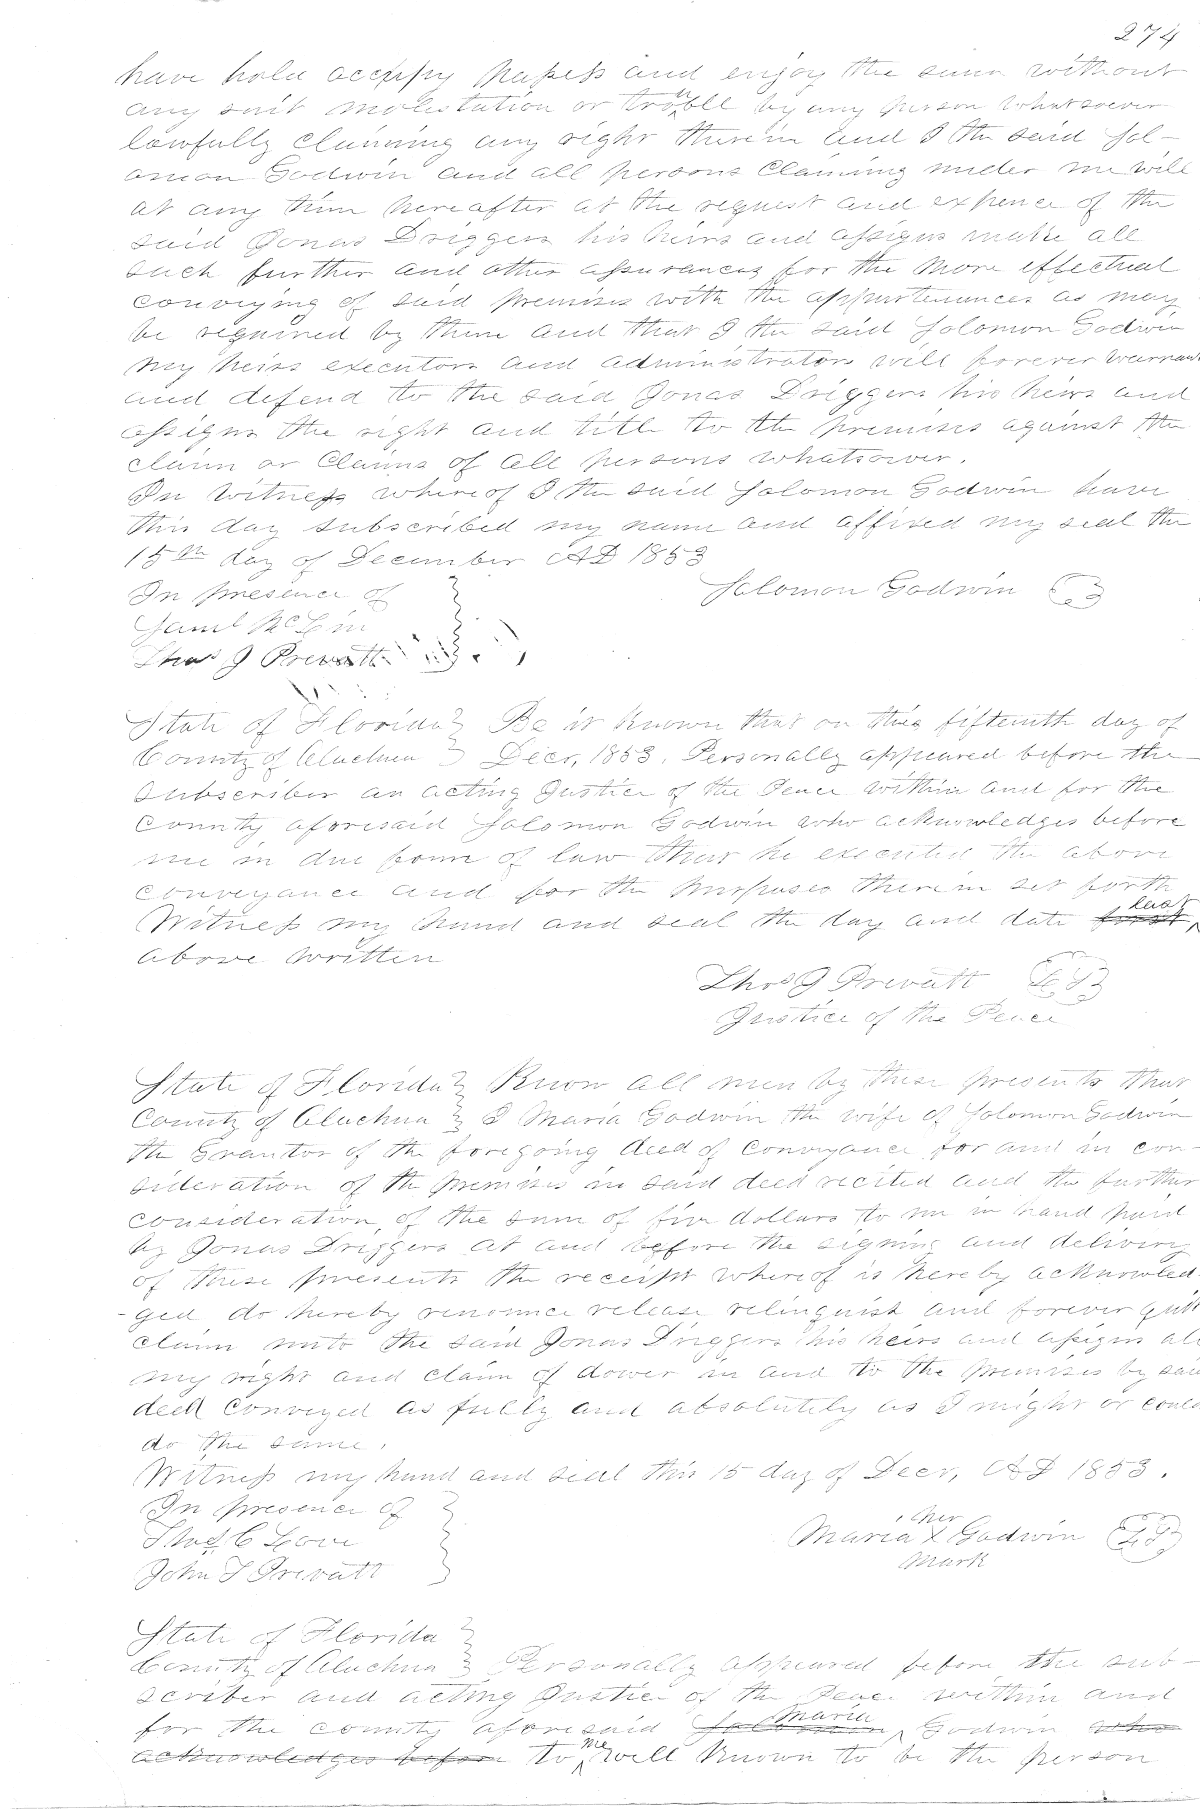 274
have hold occupy possess and enjoy the same without
any suit molestation or trouble by any person whatsoever
lawfully claiming any right therein and I the said Sol-
omon Godwin and all persons claiming under me will
at any time hereafter at the request and expence of the
said Jonas Driggers his heirs and assigns make all
such further and other assurances for the more effectual
conveying of said premises with the appurtenances as may
be required by them and that I the said Solomon Godwin
my heirs executors and administrators will forever warrant
and defend to the said Jonas Driggers his heirs and
assigns the right and title to the premises against the
claim or claims of all persons whatsoever.
In witness whereof I the said Solomon Godwin have
this day subscribed my name and affixed my seal the
15th day of December AD 1853
In presence of Solomon Godwin
Saml
Thos J Prevatt
State of Florida Be it known that on this fifteenth day of
County of Alachua Decr, 1853. Personally appeared before the
subscriber an acting Justice of the Peace within and for the
County aforesaid Solomon Godwin who acknowledges before
me in due form of law that he executed the above
conveyance and for the purposes therein set forth
Witness my hand and seal the day and date first last
above written
Thos J Prevatt LS
Justice of the Peace
State of Florida Know all men by these presents that
County of Alachua I Maria Godwin the wife of Solomon Godwin
the Grantor of the foregoing deed of conveyance for and in con-
sideration of the premises in said deed recited and the further
consideration, of the sum of five dollars to me in hand paid
by Jonas Driggers at and before the signing and delivery
of these presents the receipt whereof is hereby acknowled
-ged do hereby renounce release relinquish and forever quit
claim unto the said Jonas Driggers his heirs and assigns all
my right and claim of dower in and to the premises by said
deed conveyed as fully and absolutely as I might or could
do the same.
Witness my hand and seal this 15 day of Decr, AD 1853.
In presence of
Thos C Love
her
Maria X Godwin LS
mark
John T Prevatt
State of Florida
County of Alachua Personally appeared before the sub-
scriber and acting Justice of the Peace within and
for the county aforesaid Solomon Maria Godwin who
acknowledges before to me well known to be the person